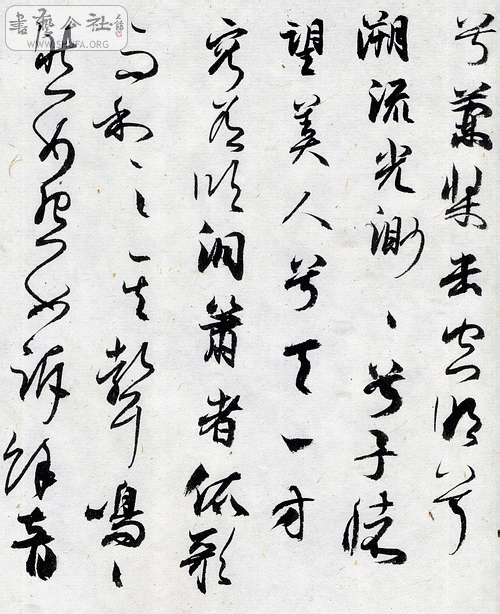 書藝公社
WWW.SHUFA.ORG
兮蘭槳擊空明兮
溯流光渺々兮予懷
望美人兮天一方
客有吹洞簫者依歌
而和之其聲嗚々
然如怨如訴餘音